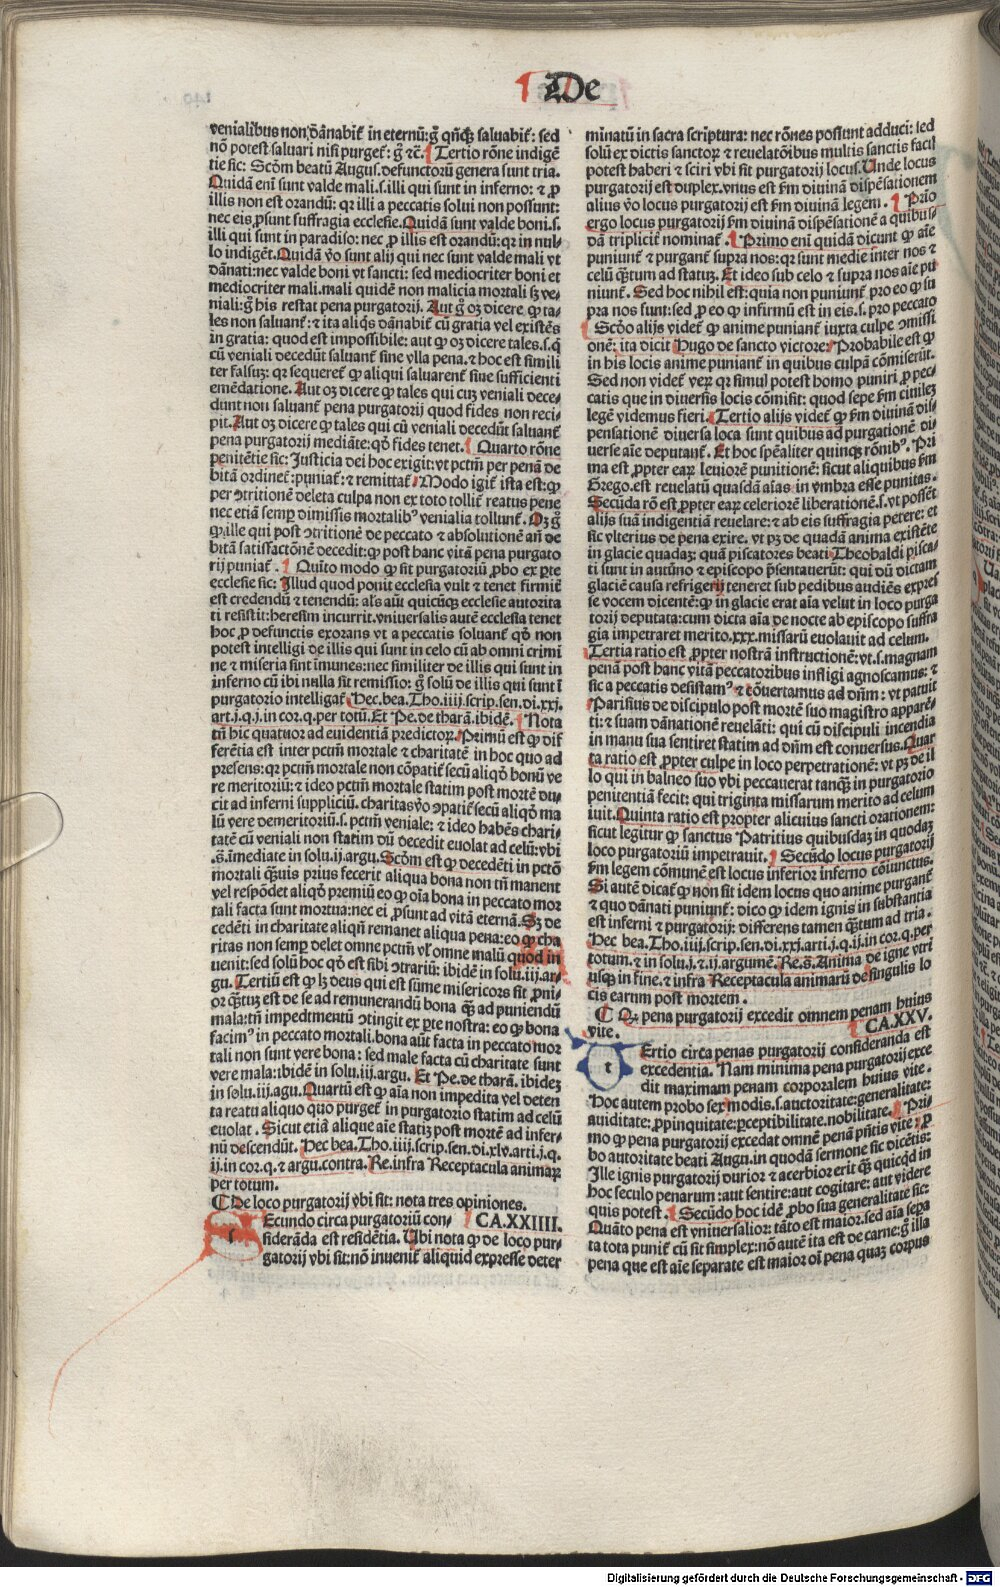 De
venialibus non dānabit̄ in eternū: g̊ qn̄q̄ saluabit̄: sed
nō potest saluari nisi purget̄: g̊ ⁊c̄. Tertio rōne indigē
tie sic: Scd̄m beatū Augus. defunctorū genera sunt tria.
Quidā eni sunt valde mali. s. illi qui sunt in inferno: ⁊ ꝓ
illis non est orandū: qr illi a peccatis solui non possunt:
nec eis ꝓsunt suffragia ecclesie. Quidā sunt valde boni. s.
illi qui sunt in paradiso: nec ꝓ illis est orandū: qr in nul-
lo indigēt. Quidā v̊o sunt alij qui nec sunt valde mali vt
dānati: nec valde boni vt sancti: sed mediocriter boni et
mediocriter mali. mali quidē non malicia mortali sꝫ ve-
niali: g̊ his restat pena purgatorij. Aut g̊ oꝫ dicere ꝙ ta-
les non saluant̄: ⁊ ita aliqs dānabit̄ cū gratia vel existēs
in gratia: quod est impossibile: aut ꝙ oꝫ dicere tales. s. q
cū veniali decedūt saluant̄ sine vlla pena. ⁊ hoc est simili
ter falsuꝫ: qr sequeret̄ ꝙ aliqui saluarent̄ sine sufficienti
emēdatione. Aut oꝫ dicere ꝙ tales qui cuꝫ veniali dece-
dunt non saluant̄ pena purgatorij quod fides non reci-
pit. Aut oꝫ dicere ꝙ tales qui cū veniali decedūt saluant̄
pena purgatorij mediāte: qd̊ fides tenet. Quarto rōne
penitētie sic: Justicia dei hoc exigit: vt pctm̄ per penā de
bitā ordinet̄: puniat̄: ⁊ remittat̄. Modo igit̄ ista est: ꝙ
per ꝯtritionē deleta culpa non ex toto tollit̄ reatus pene
nec etiā semꝑ dimissis mortalibꝰ venialia tollunt̄. Oꝫ g̊
ꝙ ille qui post ꝯtritionē de peccato ⁊ absolutionē an̄ de
bitā satisfactōnē decedit: ꝙ post hanc vitā pena purgato
rij puniat̄. Quito modo ꝙ sit purgatoriū ꝓbo ex ꝑte
ecclesie sic: Illud quod ponit ecclesia vult ⁊ tenet firmit̄
est credendū ⁊ tenendū: als̄ aūt quicūqꝫ ecclesie autorita
ti resistit: heresim incurrit. vniuersalis autē ecclesia tenet
hoc ꝓ defunctis exorans vt a peccatis soluant̄ qd̊ non
potest intelligi de illis qui sunt in celo cū ab omni crimi
ne ⁊ miseria sint īmunes: nec similiter de illis qui sunt in
inferno cū ibi nulla sit remissio: g̊ solū de illis qui sunt ī
purgatorio intelligat̄. Hec. bea. Tho. iiij. scrip. sen. di. xxj.
art. j. q. j. in cor. q. per totū. Et Pe. de tharā. ibidē. Nota
tn̄ hic quatuor ad euidentiā predictoꝝ. Primū est ꝙ dif
ferētia est inter pctm̄ mortale ⁊ charitatē in hoc quo ad
presens: qr pctm̄ mortale non cōpatit̄ secū aliqd̊ bonū ve
re meritoriū: ⁊ ideo pctm̄ mortale statim post mortē du-
cit ad inferni suppliciū. charitas v̊o ꝯpatit̄ secū aliqd̊ ma
lū vere demeritoriū. s. pctm̄ veniale: ⁊ ideo habēs chari-
tatē cū veniali non statim dū decedit euolat ad celū: vbi
.s. īmediate in solu. ij. argu. Scd̄m est ꝙ decedēti in pctō
mortali qꝫuis prius fecerit aliqua bona non tn̄ manent
vel respōdet aliqd̊ premiū eo ꝙ oīa bona in peccato moꝛ
tali facta sunt moꝛtua: nec ei ꝓsunt ad vitā eternā. Sꝫ de
cedēti in charitate aliqn̄ remanet aliqua pena: eo ꝙ cha
ritas non semꝑ delet omne pctm̄ vl̓ omne malū quod in
uenit: sed solū hoc qd̊ est sibi ꝯtrariū: ibidē in solu. iij. ar-
gu. Tertiū est ꝙ lꝫ deus qui est sūme misericors sit ꝓni-
or qꝫtuꝫ est de se ad remunerandū bona qꝫ ad puniendū
mala: tn̄ impedimentū ꝯtingit ex ꝑte nostra: eo ꝙ bona
facimꝰ in peccato mortali. bona aūt facta in peccato moꝛ
tali non sunt vere bona: sed male facta cū charitate sunt
vere mala: ibidē in solu. iij. argu. Et Pe. de tharā. ibideꝫ
in solu. iij. agu. Quartū est ꝙ aīa non impedita vel deten
ta reatu aliquo quo purget̄ in purgatorio statim ad celū
euolat. Sicut etiā alique aīe statiꝫ post mortē ad infer-
nū descendūt. Hec bea. Tho. iiij. scrip. sen. di. xlv. arti. j. q.
ij. in cor. q. ⁊ argu. contra. Re. infra Receptacula animaꝝ
per totum.
De loco purgatorij vbi sit: nota tres opiniones.
CA. XXIIII.
Secundo circa purgatoriū con-
siderāda est residētia. Ubi nota ꝙ de loco pur-
gatorij vbi sit: nō inuenit̄ aliquid expresse deter
minatū in sacra scriptura: nec rōnes possunt adduci: sed
solū ex dictis sanctoꝝ ⁊ reuelatōibus multis sanctis facī
potest haberi ⁊ sciri vbi sit purgatorij locus. Unde locus
purgatorij est duplex. vnus est ẜm diuinā dispēsationem
alius v̊o locus purgatorij est ẜm diuinā legem. Prīo
ergo locus purgatorij ẜm diuinā dispēsationē a quibus-
dā triplicit̄ nominat̄. Primo eni quidā dicunt ꝙ aīe
puniunt̄ ⁊ purgant̄ supra nos: qr sunt medie inter nos ⁊
celū qꝫtum ad statuꝫ. Et ideo sub celo ⁊ supra nos aīe pu
niunt̄. Sed hoc nihil est: quia non puniunt̄ pro eo ꝙ su
pra nos sunt: sed ꝓ eo ꝙ infirmū est in eis. s. pro peccato
Scd̊o alijs videt̄ ꝙ anime puniant̄ iuxta culpe ꝯmissi
onē: ita dicit Hugo de sancto victore: Probabile est ꝙ
in his locis anime puniant̄ in quibus culpā cōmiserūt.
Sed non videt̄ veꝝ qr simul potest homo puniri ꝓ pec
catis que in diuersis locis cōmisit: quod sepe ẜm ciuileꝫ
legē videmus fieri. Tertio alijs videt̄ ꝙ ẜm diuinā dis
pensationē diuersa loca sunt quibus ad purgationē di
uerse aīe deputant̄. Et hoc spēaliter quinqꝫ rōnibꝰ. Pri
ma est ꝓpter eaꝝ leuiorē punitionē: sicut aliquibus ẜm
Grego. est reuelatū quasdā aīas in vmbra esse punitas.
Secūda rō est ꝓpter eaꝝ celeriorē liberationē. s. vt possēt
alijs suā indigentiā reuelare: ⁊ ab eis suffragia petere: et
sic vlterius de pena exire. vt pꝫ de quadā anima existēte
in glacie quadaꝫ: quā piscatores beati Theobaldi pisca-
ti sunt in autūno ⁊ episcopo p̄sentauerūt: qui dū dictam
glaciē causa refrigerij teneret sub pedibus audiēs expres
se vocem dicentē: ꝙ in glacie erat aīa velut in loco purga
torij deputata: cum dicta aīa de nocte ab episcopo suffra
gia impetraret merito. xxx. missarū euolauit ad celum.
Tertia ratio est ꝓpter nostrā instructionē: vt. s. magnam
penā post hanc vitā peccatoribus infligi agnoscamus: ⁊
sic a peccatis desistamꝰ ⁊ cōuertamus ad dn̄m: vt patuit
Parisius de discipulo post mortē suo magistro apparē-
ti: ⁊ suam dānationē reuelāti: qui cū discipuli incendia
in manu sua sentiret statim ad dn̄m est conuersus. Quar
ta ratio est ꝓpter culpe in loco perpetrationē: vt pꝫ de il
lo qui in balneo suo vbi peccauerat tanqꝫ in purgatorio
penitentiā fecit: qui triginta missarum merito ad celum
iuit. Quinta ratio est propter alicuius sancti orationem:
sicut legitur ꝙ sanctus Patritius quibusdaꝫ in quodaꝫ
loco purgatoriū impetrauit. Secūdo locus purgatorij
ẜm legem cōmunē est locus inferior inferno cōiunctus.
Si autē dicat̄ ꝙ non sit idem locus quo anime purgant̄
⁊ quo dānati puniunt̄: dico ꝙ idem ignis in substantia
est inferni ⁊ purgatorij: differens tamen qꝫtum ad tria.
Hec bea. Tho. iiij. scrip. sen. di. xxj. arti. j. q. ij. in cor. q. per
totum. ⁊ in solu. j. ⁊ ij. argumē. Re. s. Anima de igne vtri
usqꝫ in fine. ⁊ infra Receptacula animarū de singulis lo
cis earum post mortem.
Ꝙ pena purgatorij excedit omnem penam huius
vite. CA. XXV.
tErtio circa penas purgatorij consideranda est
excedentia. Nam minima pena purgatorij exce
dit maximam penam corporalem huius vite.
Hoc autem probo sex modis. s. auctoritate: generalitate:
auiditate: ꝓpinquitate: ꝑceptibilitate. nobilitate. Pri-
mo ꝙ pena purgatorij excedat omnē penā pn̄tis vite: ꝓ
bo autoritate beati Augu. in quodā sermone sic dicētis:
Ille ignis purgatorij durior ⁊ acerbior erit qꝫ quicqd in
hoc seculo penarum: aut sentire: aut cogitare: aut videre
quis potest. Secūdo hoc idē ꝓbo sua generalitate sic:
Quāto pena est vniuersalior: tāto est maior. sed aīa sepa
ta tota punit̄ cū sit simplex: nō autē ita est de carne: g̊ illa
pena que est aīe separate est maior oī pena quaꝫ corpus
Digitalisierung gefördert durch die Deutsche Forschungsgemeinschaft - DFG